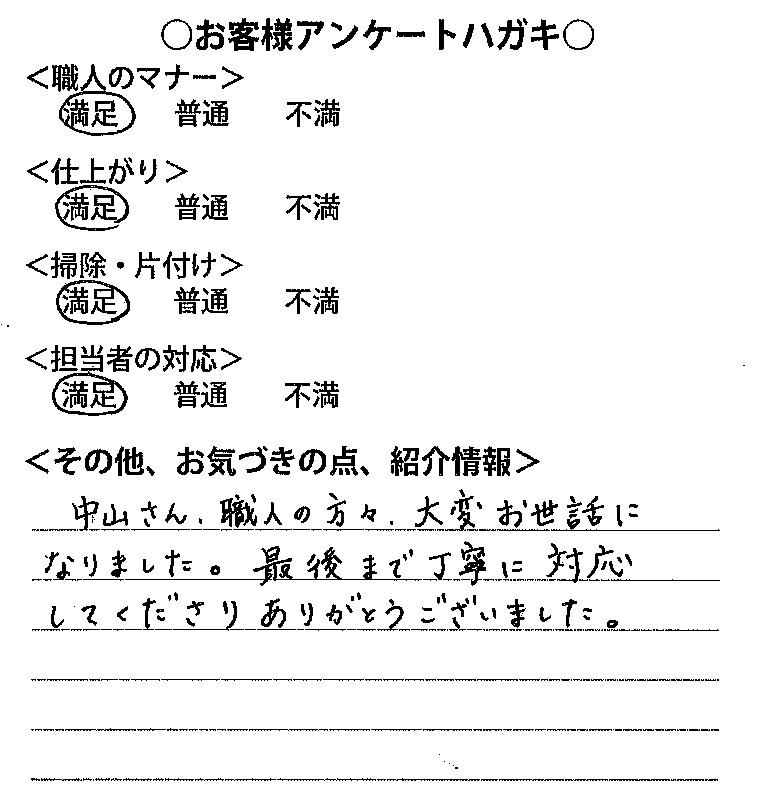 ○お客様アンケートハガキ○
＜職人のマナー＞
満足 普通 不満
＜仕上がり＞
満足 普通 不満
＜掃除・片付け＞
満足 普通 不満
＜担当者の対応＞
満足 普通 不満
＜その他、お気づきの点、紹介情報＞
中山さん、職人の方々、大変お世話に
なりました。最後まで丁寧に対応
してくださりありがとうございました。